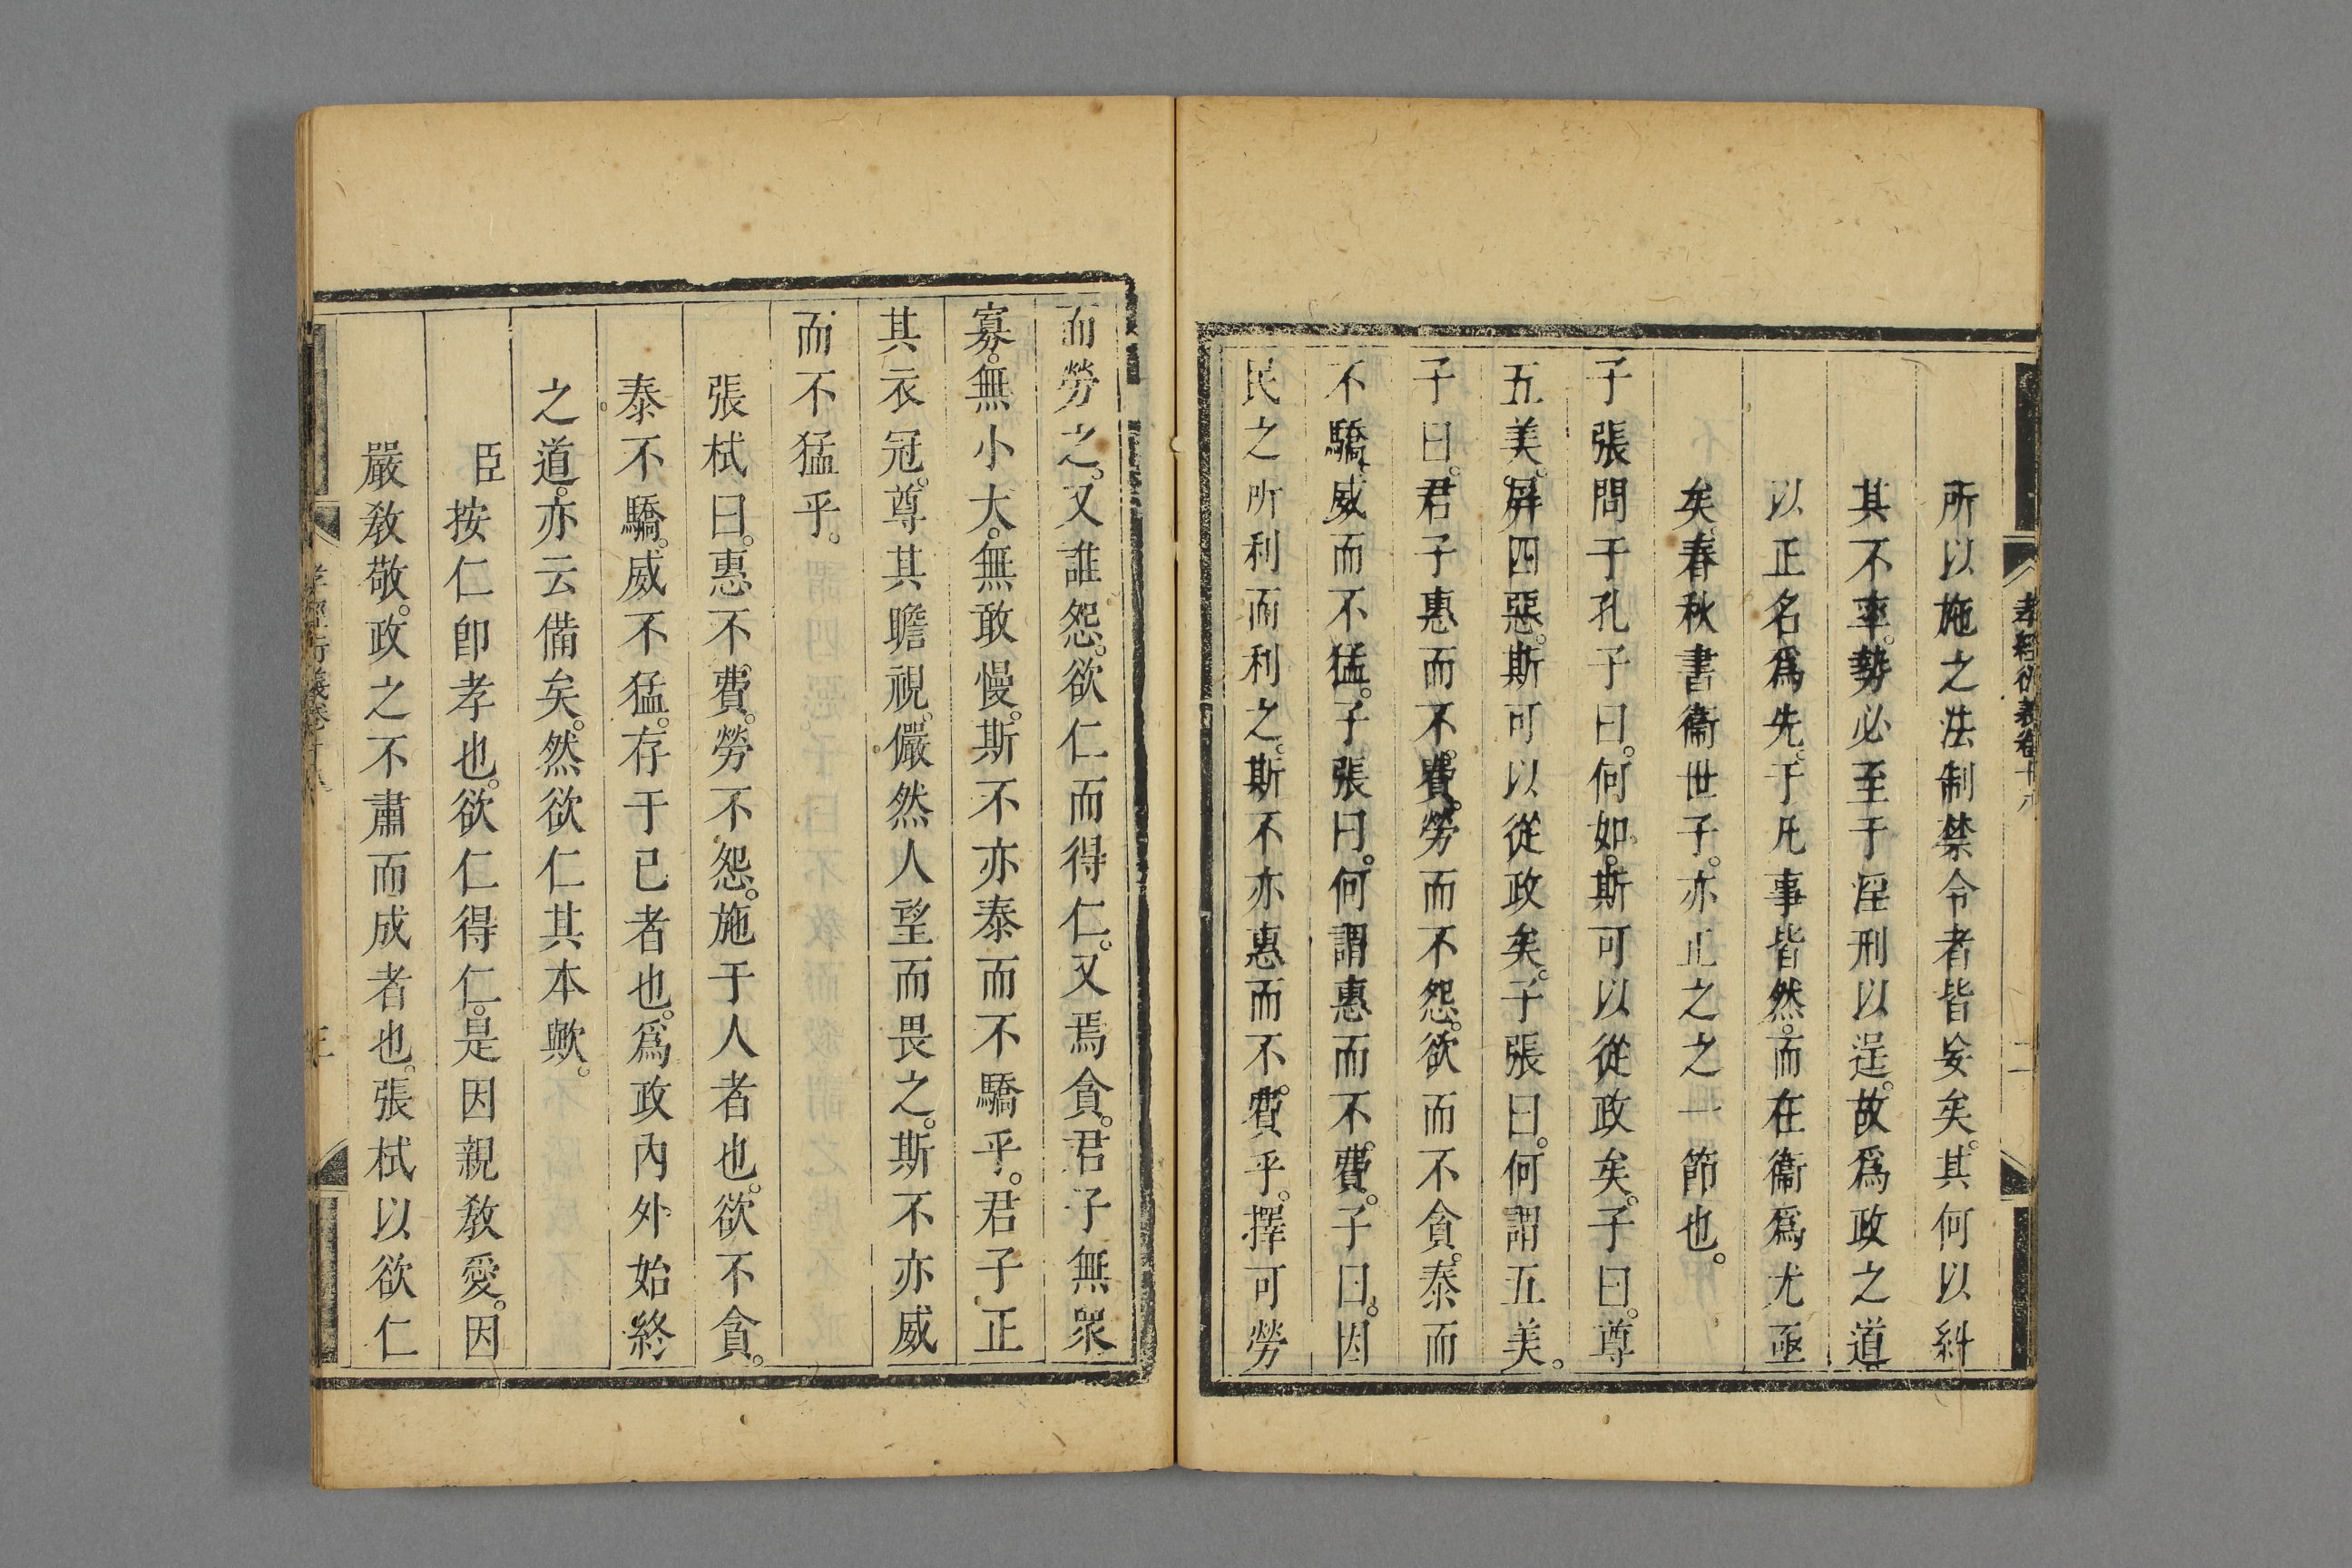 孝經衍義卷十八
二
所以施之法制禁令者皆妄矣。其何以糾
其不率。勢必至于淫刑以逞。故爲政之道
以正名爲先。于凡事皆然。而在衞爲尤亟
矣。春秋書衞世子。亦正之之一節也。
子張問于孔子曰。何如。斯可以從政矣。子曰。尊
五美。屛四惡。斯可以從政矣。子張曰。何謂五美。
子曰。君子惠而不費。勞而不怨。欲而不貪。泰而
不驕。威而不猛。子張曰。何謂惠而不費。子曰。因
民之所利而利之。斯不亦惠而不費乎。擇可勞
而勞之。又誰怨。欲仁而得仁。又焉貪。君子無眾
寡。無小大。無敢慢。斯不亦泰而不驕乎。君子正
其衣冠。尊其瞻視。儼然人望而畏之。斯不亦威
而不猛乎。
張栻曰。惠不費。勞不怨。施于人者也。欲不貪。
泰不驕。威不猛。存于已者也。爲政內外始終
之道。亦云備矣。然欲仁其本歟。
臣按仁卽孝也。欲仁得仁。是因親敎愛。因
嚴敎敬。政之不肅而成者也。張栻以欲仁
孝經衍義卷十八